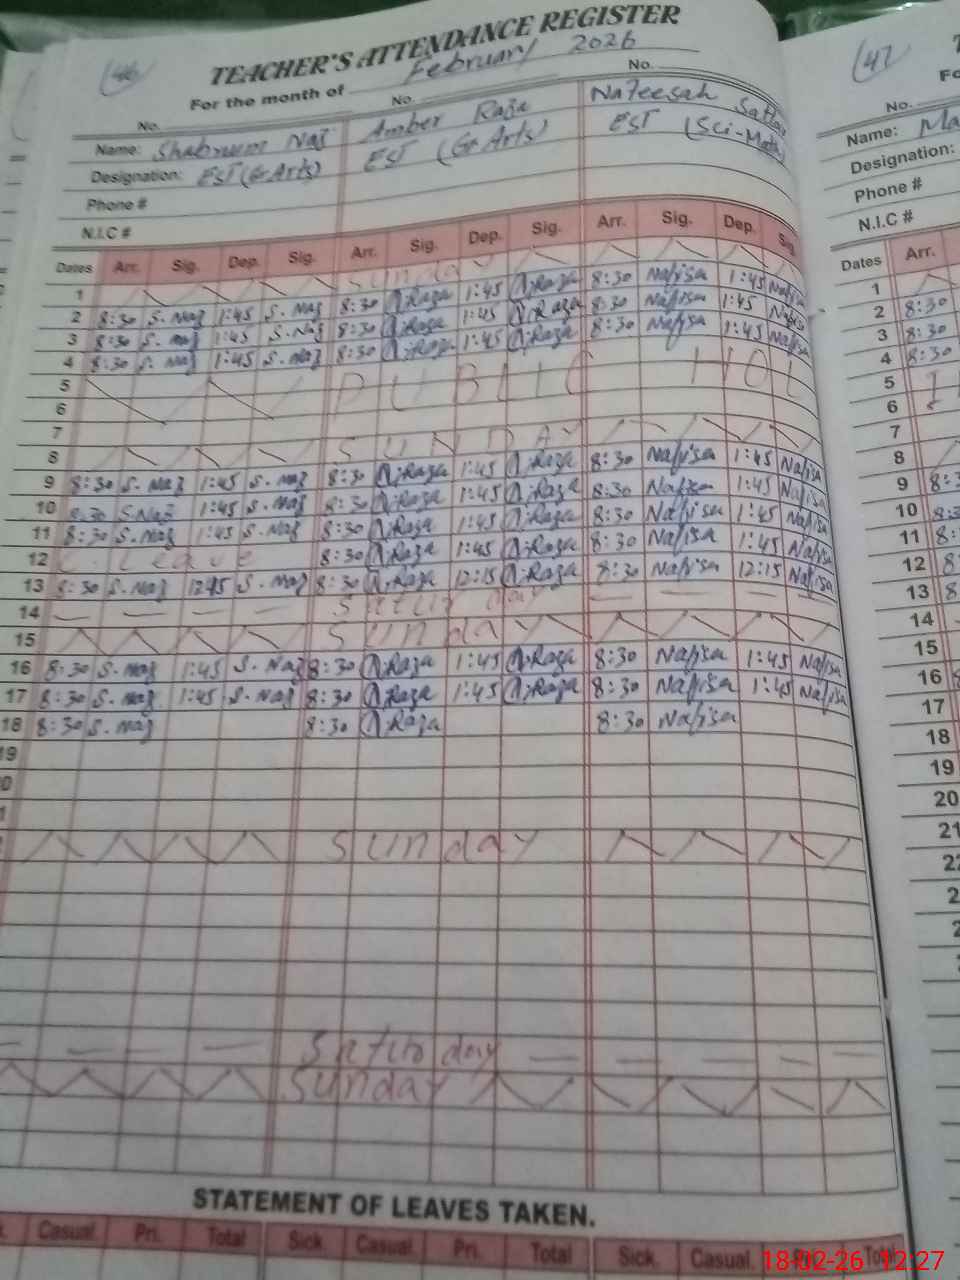 46
TEACHER'S ATTENDANCE REGISTER
For the month of February 2026
No. No. No.
Name: Shabnum Naz Amber Raza Nafeesah Sattar
Designation: EST (G.Arts) EST (G.Arts) EST (Sci-Math)
Phone #
N.I.C #
Dates Arr. Sig. Dep. Sig. Arr. Sig. Dep. Sig. Arr. Sig. Dep. Sig.
1 Sunday
2 8:30 S. Naz 1:45 S. Naz 8:30 A.Raza 1:45 A.Raza 8:30 Nafisa 1:45 Nafisa
3 8:30 S. Naz 1:45 S. Naz 8:30 A.Raza 1:45 A.Raza 8:30 Nafisa 1:45 Nafisa
4 8:30 S. Naz 1:45 S. Naz 8:30 A.Raza 1:45 A.Raza 8:30 Nafisa 1:45 Nafisa
5 PUBLIC HOL
6
7
8 SUNDAY
9 8:30 S. Naz 1:45 S. Naz 8:30 A.Raza 1:45 A.Raza 8:30 Nafisa 1:45 Nafisa
10 8:30 S.Naz 1:45 S. Naz 8:30 A.Raza 1:45 A.Raza 8:30 Nafisa 1:45 Nafisa
11 8:30 S. Naz 1:45 S. Naz 8:30 A.Raza 1:45 A.Raza 8:30 Nafisa 1:45 Nafisa
12 C. Leave 8:30 A.Raza 1:45 A.Raza 8:30 Nafisa 1:45 Nafisa
13 8:30 S. Naz S. Naz 8:30 A.Raza 12:15 A.Raza 8:30 Nafisa 12:15 Nafisa
14
15 Sunday
16 8:30 S. Naz 1:45 S. Naz 8:30 A.Raza 1:45 A.Raza 8:30 Nafisa 1:45 Nafisa
17 8:30 S. Naz 1:45 S. Naz 8:30 A.Raza 1:45 A.Raza 8:30 Nafisa 1:45 Nafisa
18 8:30 S. Naz 8:30 A.Raza 8:30 Nafisa
19
Sunday
Sunday
STATEMENT OF LEAVES TAKEN.
Casual. Pri. Total Sick. Casual. Pri. Total Sick. Casual. Total
47
No.
Name: Ma
Designation:
Phone #
N.I.C #
Dates Arr.
1
2 8:30
3 8:30
4 8:30
5
6
7
8
9
10
11
12
13
14
15
16
17
18
19
20
21
18-02-26 12:27